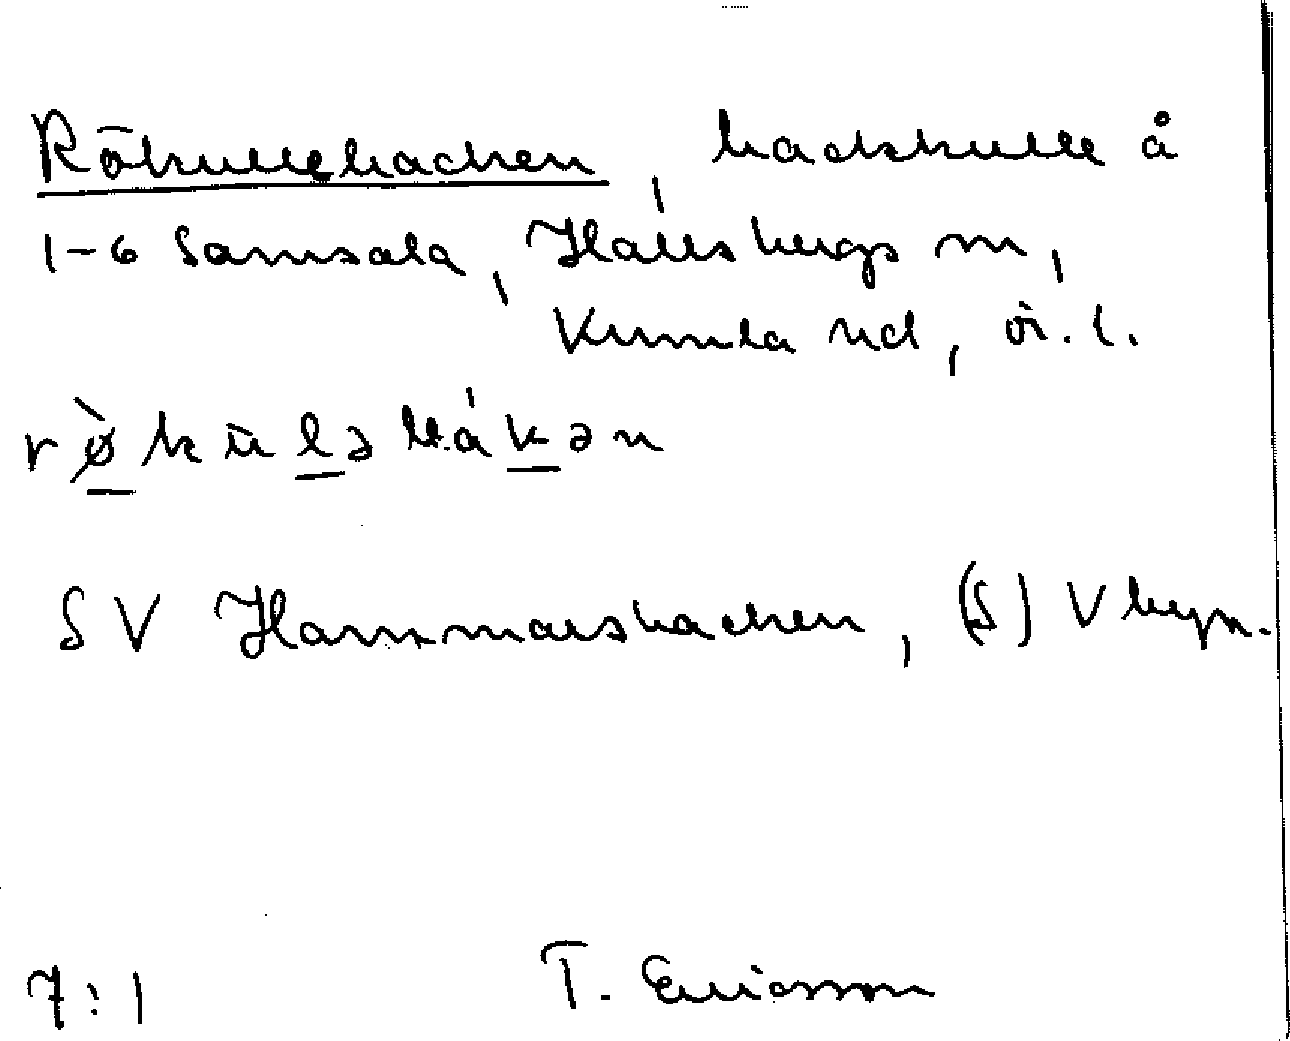 Rökullebacken, backkulle å
1-6 Samsala, Hallsbergs sn,
Kumla hd, ör. l.
rø̀kùləbákən
SV Hammarsbacken, (S) V byn.
7:1 T. Ericsson